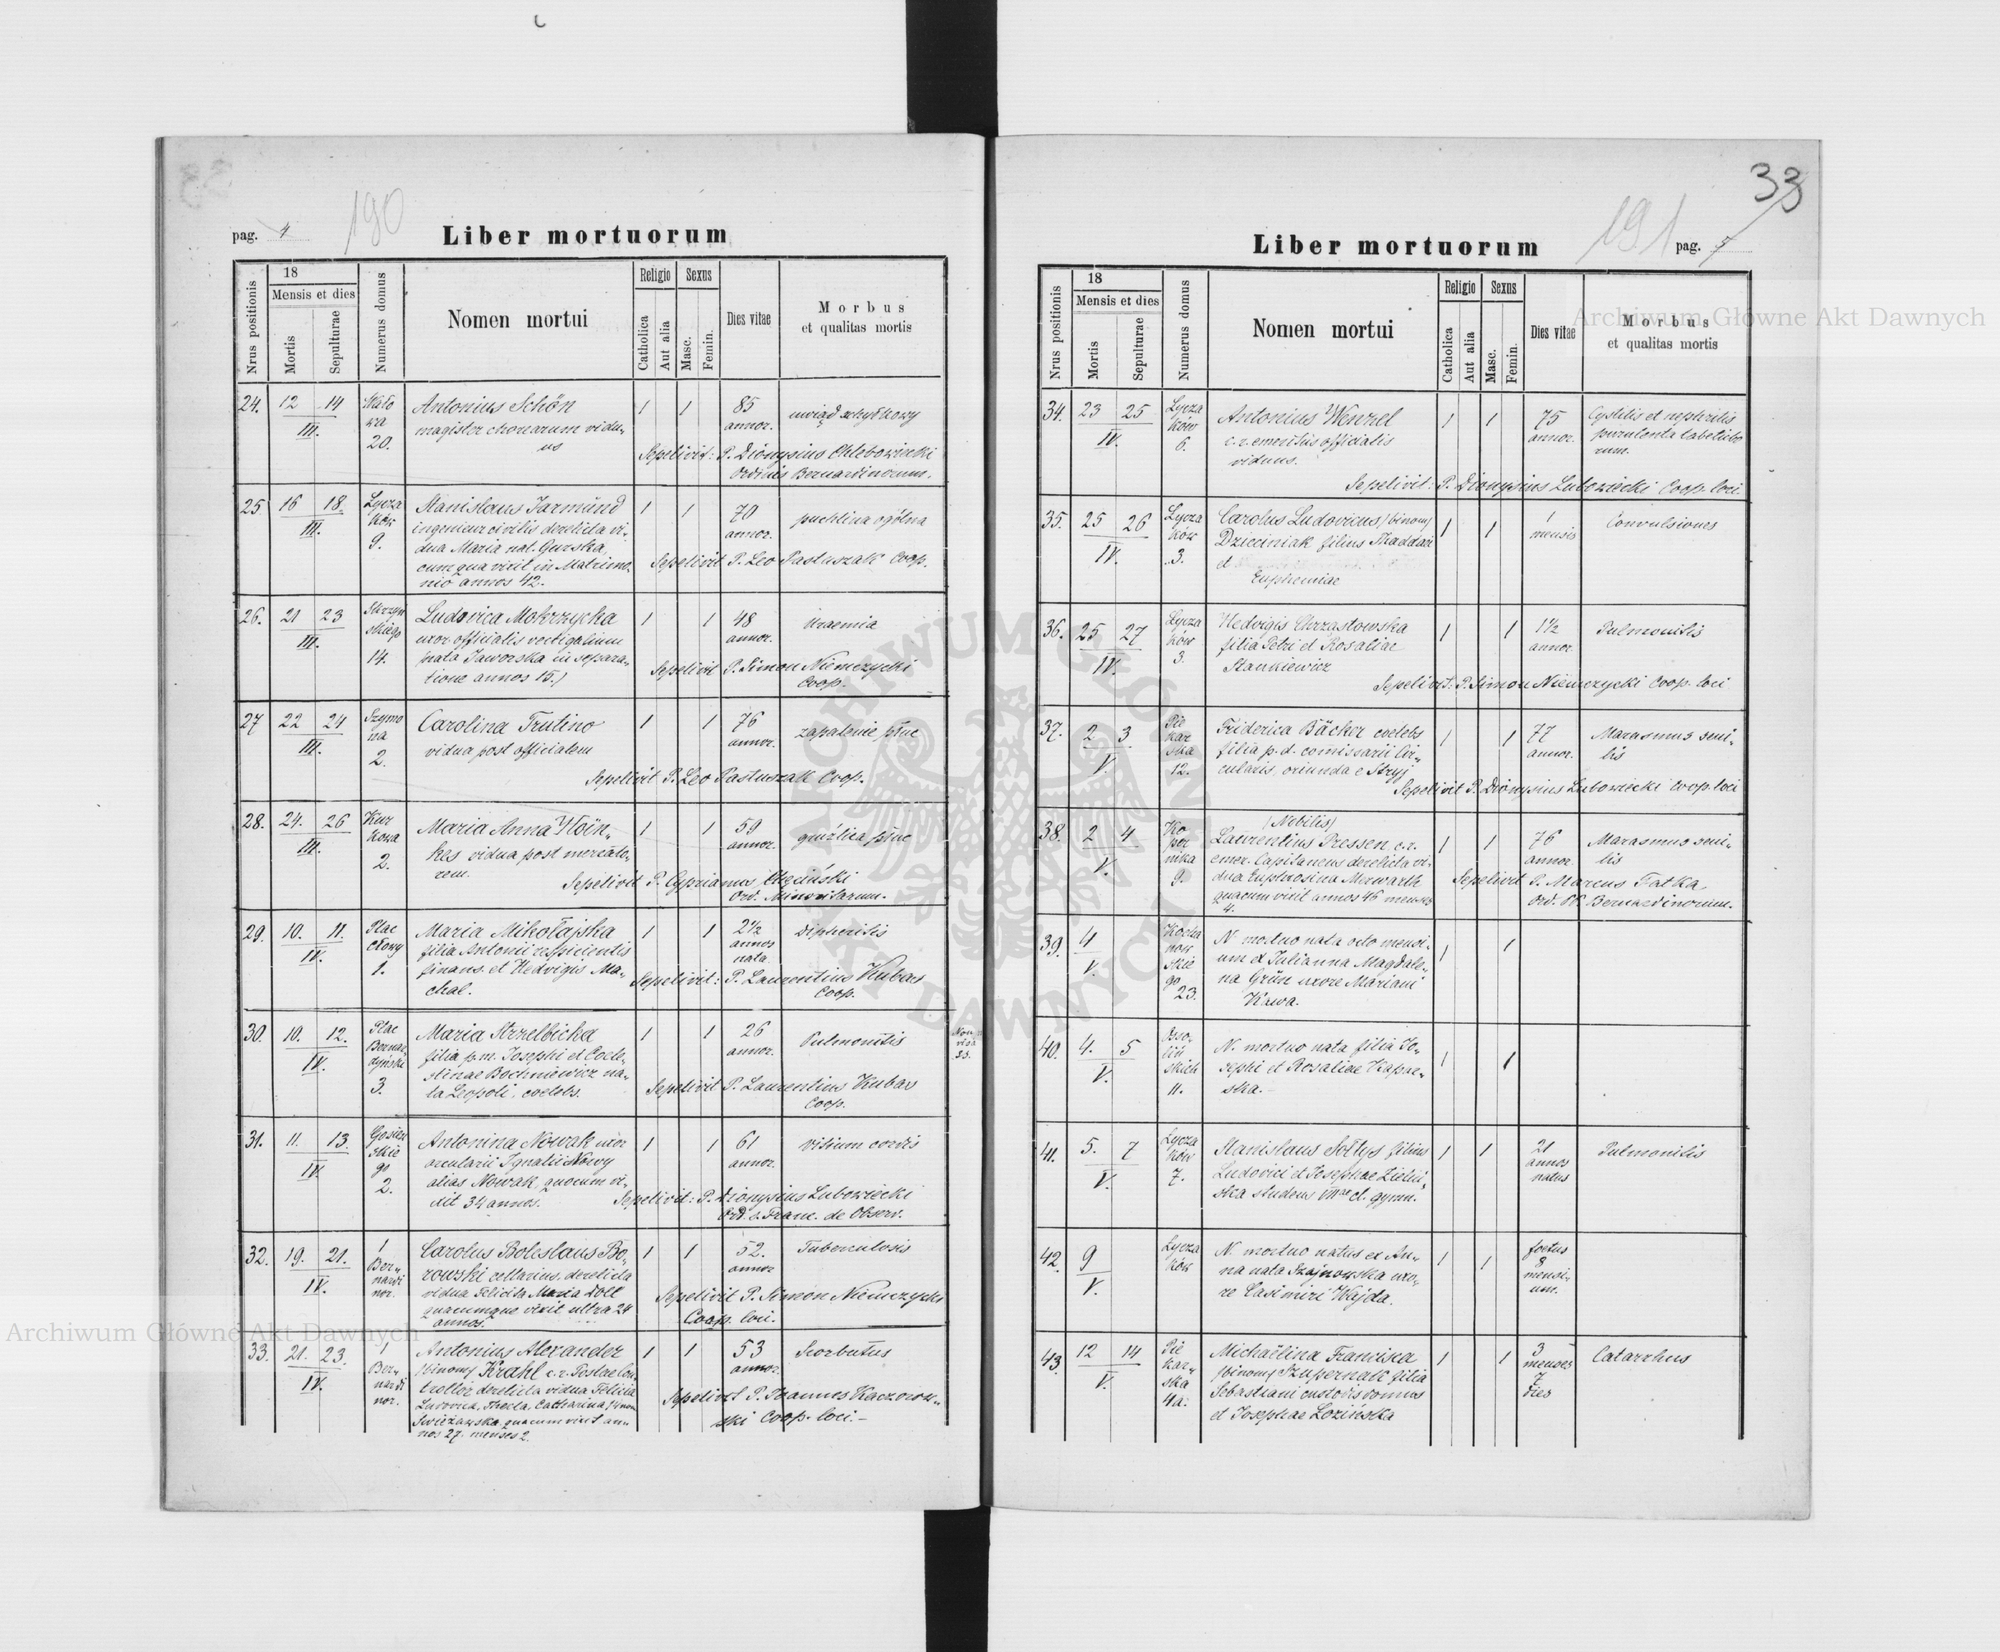 33
pag. 4
190
Liber mortuorum
Nrus positionis
18
Mensis et dies
Mortis
Sepulturae
Numerus domus
Nomen mortui
Religio
Catholica
Aut alia
Sexus
Masc.
Femin.
Dies vitae
Morbus
et qualitas mortis
24. 12 14 III.
20.
Antonius Schön
magister chorearum vidu-
us
1 1
85
annor.
uwiąd schyłkowy
Sepelivit: P. Dionysius
Ordinis Bernardinorum.
25 16 18. III.
Lycza
ków
9.
Stanislaus Jarmünd
ingenieur civilis derelicta vi-
dua Maria nat. Gurska,
cum qua vixit in Matrimo-
nio annos 42.
1 1
70
annor.
puchlina ogólna
Sepelivit P. Leo Pastuszak Coop.
26. 21 23 III.
14.
Ludovica Mokrzycka
uxor officialis vectigalium
nata Jaworska in separa-
tione annos 15.)
1 1
48
annor.
Uraemia
Sepelivit P. Simon Niemczycki
Coop.
27 22 24 III.
Szymo
na
2.
Carolina Trutino
vidua post officialem
1 1
76
annor.
zapalenie płuc
Sepelivit P. Leo Pastuszak Coop.
28. 24. 26 III.
Kur
kowa
2.
Maria Anna
vidua post mercato-
rem.
1 1
59
annor.
gruźlica płuc
Sepelivit P. Cyprianus
Ord. Minoritarum.
29. 10. 11. IV.
Plac
Clowy
1.
Maria Mikołajska
filia Antonii respicientis
finans. et Hedvigis Ma-
chal.
1 1
2½
annos
nata
Diphteritis
Sepelivit: P. Laurentius Kubas
Coop.
30. 10. 12. IV.
Plac
Bernar
dyński
3.
Maria Strzelbicka
filia p.m. Josephi et Coele-
stinae Bochniewicz na-
ta Leopoli. coelebs.
1 1
26
annor.
Pulmonitis
Sepelivit P. Laurentius Kubas
Coop.
31. 11. 13. IV.
2.
Antonina Nowak uxor
arcularii Ignatii Nowy
alias Nowak, quocum vi-
xit 34 annos.
1 1
61
annor.
Vitium cordis
Sepelivit: P. Dionysius Lubowiecki
Ord. s. Franc. de Observ.
32. 19. 21. IV.
1
Ber-
nardi
nor.
Carolus Boleslaus Bo-
rowski cellarius. derelicta
vidua Felicita Maria Doll
quacumque vixit ultra 24
annos.
1 1
52.
annor
Tuberculosis
Sepelivit P. Simon Niemczycki
Coop. loci.
33. 21. 23. IV.
1
Ber-
nardi
nor.
Antonius Alexander
(binom) Krahl c.r. Postae Con-
trollor derelicta vidua Felicia
Ludovica, Thecla, Catharina
quacum vixit an-
nos 27. menses 2.
1 1
53
annor.
Scorbutus
Sepelivit P. Joannes Kaczorow-
ski Coop. loci.-
33
191
Liber mortuorum
pag. 5
Nrus positionis
18
Mensis et dies
Mortis
Sepulturae
Numerus domus
Nomen mortui
Religio
Catholica
Aut alia
Sexus
Masc.
Femin.
Dies vitae
Morbus
et qualitas mortis
34. 23 25 IV.
Lycza
ków
6.
Antonius Wenzel
c.r. emeritus officialis
viduus.
1 1
75
annor.
Cystitis et nephritis
purulenta
Sepelivit: P. Dionysius Lubowiecki Coop. loci.
35. 25 26 IV.
Lycza
ków
3.
Carolus Ludovicus (binom)
Dzieciniak filius Thaddaei
et
Euphemiae
1 1
1
mensis
Convulsiones
36. 25 27 IV.
Lycza
ków
3.
Hedvigis Chrząstowska
filia Petri et Rosaliae
Stankiewicz
1 1
1½
annor.
Pulmonitis
Sepelivit: P. Simon Niemczycki Coop. loci
37. 2 3 V.
Pie
kar
ska
12.
Friderica Bäcker coelebs
filia p.d. comissarii Cir-
cularis, oriunda e Stryj
1 1
77
annor.
Marasmus seni-
lis
Sepelivit P. Dionysius Lubowiecki Coop. loci
38. 2 4 V.
Ko
per
nika
9.
(Nobilis)
Laurentius Pressen c.r.
emer. Capitaneus derelicta vi-
dua Euphrosina Merwarth
quacum vixit annos 46 menses
4.
1 1
76
annor.
Marasmus seni-
lis
Sepelivit P. Marcus Fatka
Ord. PP. Bernardinorum.
39. 4 V.
Kocha
now
skie
go
23.
N. mortuo nata octo mensi-
um ex Julianna Magdale-
na Grün uxore Mariani
Kawa.
1 1
40. 4. 5 V.
Osso-
liń
skich
11.
N. mortuo nata filia Jo-
sephi et Rosaliae
ska.-
1 1
41. 5. 7 V.
Lycza
ków
7.
Stanislaus Sołtys filius
Ludovici et Josephae Zieliń-
ska studens VIIae cl. gymn.
1 1
21
annos
natus
Pulmonitis
42. 9 V.
Lycza
ków
N. mortuo natus ex An-
na nata Szajnowska uxo-
re Casimiri Wajda.
1 1
foetus
8
mensi-
um.
43. 12 14 V.
Pie
kar-
ska
4a.
Michaëlina Francisca
(binom) Szupernak filia
Sebastiani custodis domus
et Josephae Lozińska
1 1
3
menses
7
dies
Catarrhus
Archiwum Główne Akt Dawnych
Archiwum Główne Akt Dawnych
ARCHIWUM GŁÓWNE AKT DAWNYCH